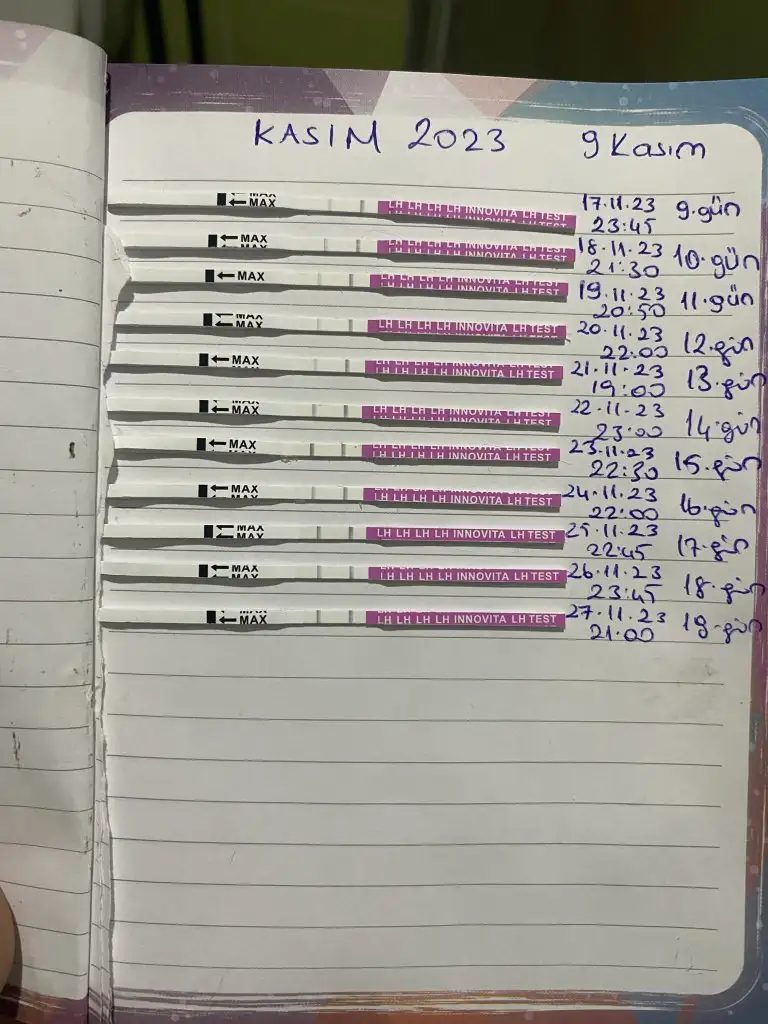 KASIM 2023 9 Kasım
MAX
MAX LH LH LH LH INNOVITA LH TEST 17.11.23 9.gün
23:45
MAX LH LH LH LH INNOVITA LH TEST 18.11.23 10.gün
21:30
MAX LH LH LH LH INNOVITA LH TEST 19.11.23 11.gün
20:50
MAX
MAX LH LH LH LH INNOVITA LH TEST 20.11.23 12.gün
22:00
MAX LH LH LH LH INNOVITA LH TEST 21.11.23 13.gün
19:00
MAX LH LH LH LH INNOVITA LH TEST 22.11.23 14.gün
23:00
MAX LH LH LH LH INNOVITA LH TEST 23.11.23 15.gün
22:30
MAX LH LH LH LH INNOVITA LH TEST 24.11.23 16.gün
22:00
MAX
MAX LH LH LH LH INNOVITA LH TEST 25.11.23 17.gün
22:45
MAX
MAX LH LH LH LH INNOVITA LH TEST 26.11.23 18.gün
23:45
MAX
MAX LH LH LH LH INNOVITA LH TEST 27.11.23 19.gün
21:00